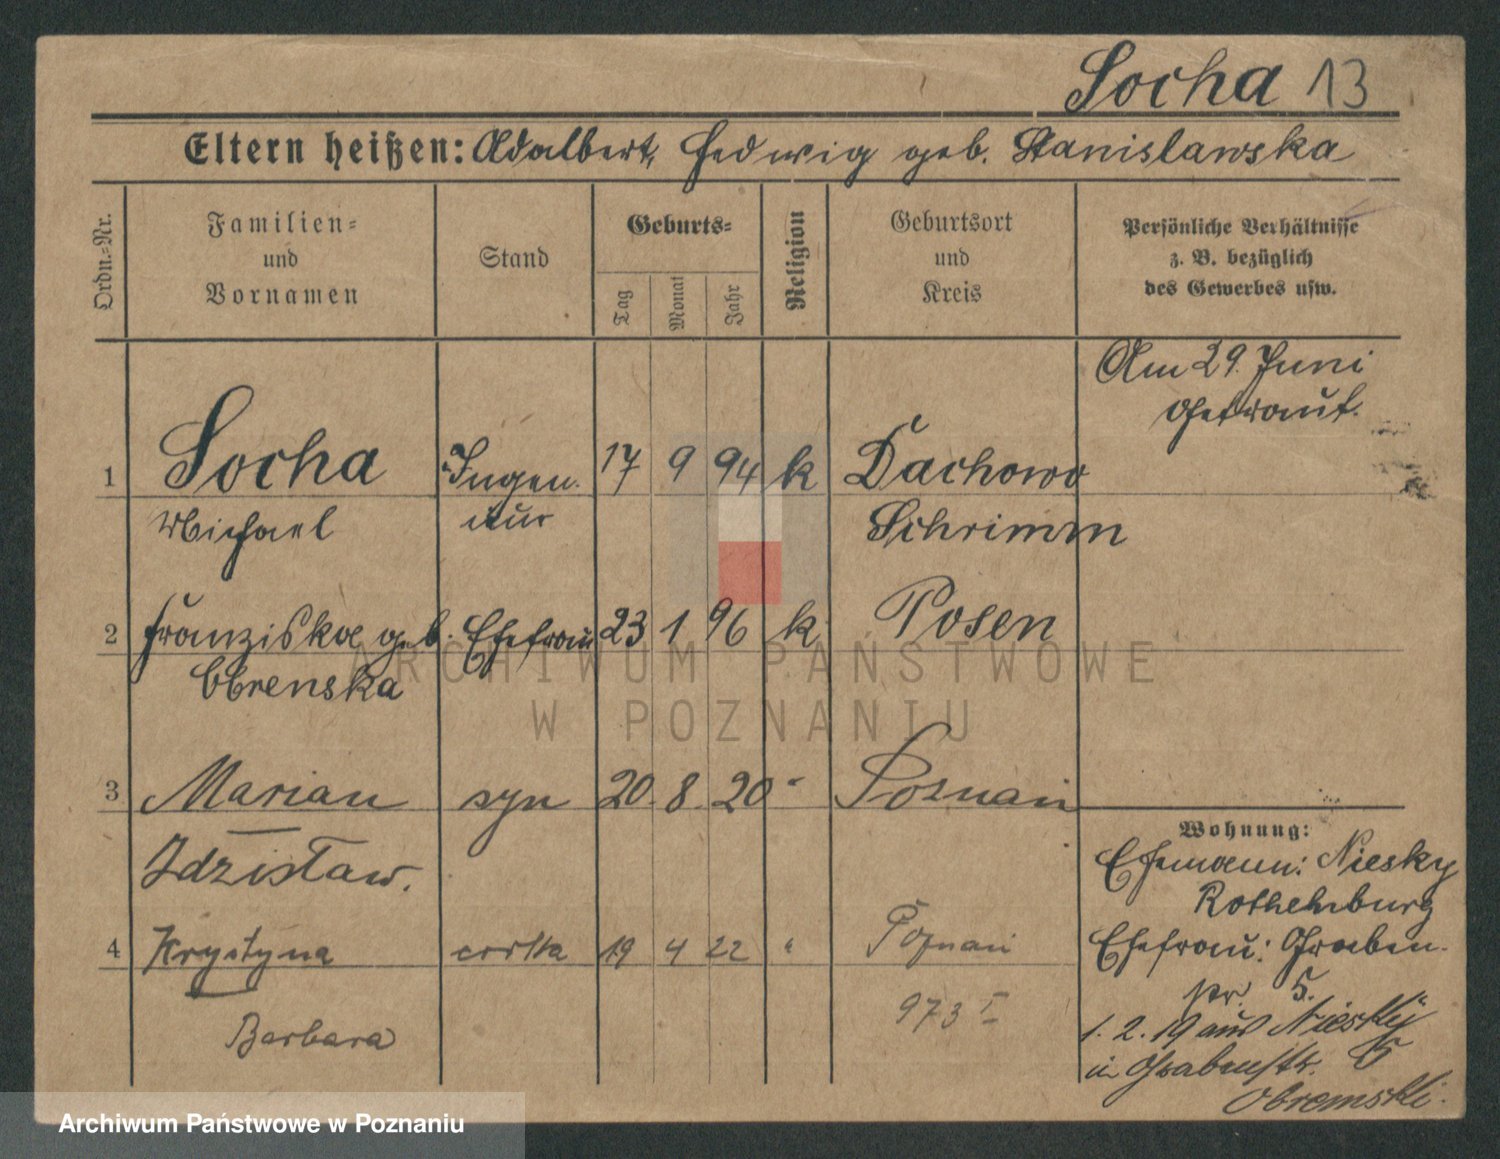 Socha 13
Eltern heißen: Adalbert, Hedwig geb. Stanislawska
Ordn.-Nr.
Familien-
und
Vornamen
Stand
Geburts-
Tag
Monat
Jahr
Religion
Geburtsort
und
Kreis
Persönliche Verhältnisse
z. B. bezüglich
des Gewerbes usw.
Am 29. Juni
getraut.
1 Socha Ingen. 17 9 94 k Dachowo
Michael ieur Schrimm
2 Franziska geb. Ehefrau 23 1 96 k Posen
Obrenska
ARCHIWUM PAŃSTWOWE
W POZNANIU
3 Marian syn 20 8 20 " Poznań
Zdzisław.
4 Krystyna córka 19 4 22 " Poznań
Barbara
973 I
Wohnung:
Ehemann: Niesky
Rothenburg
Ehefrau: Graben-
str. 5.
1. 2. 19 aus Niesky
in Grabenstr. 5
Obremski.
Archiwum Państwowe w Poznaniu